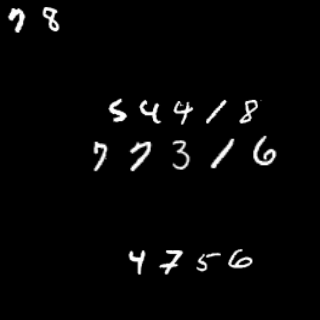 78
54418
77316
4756